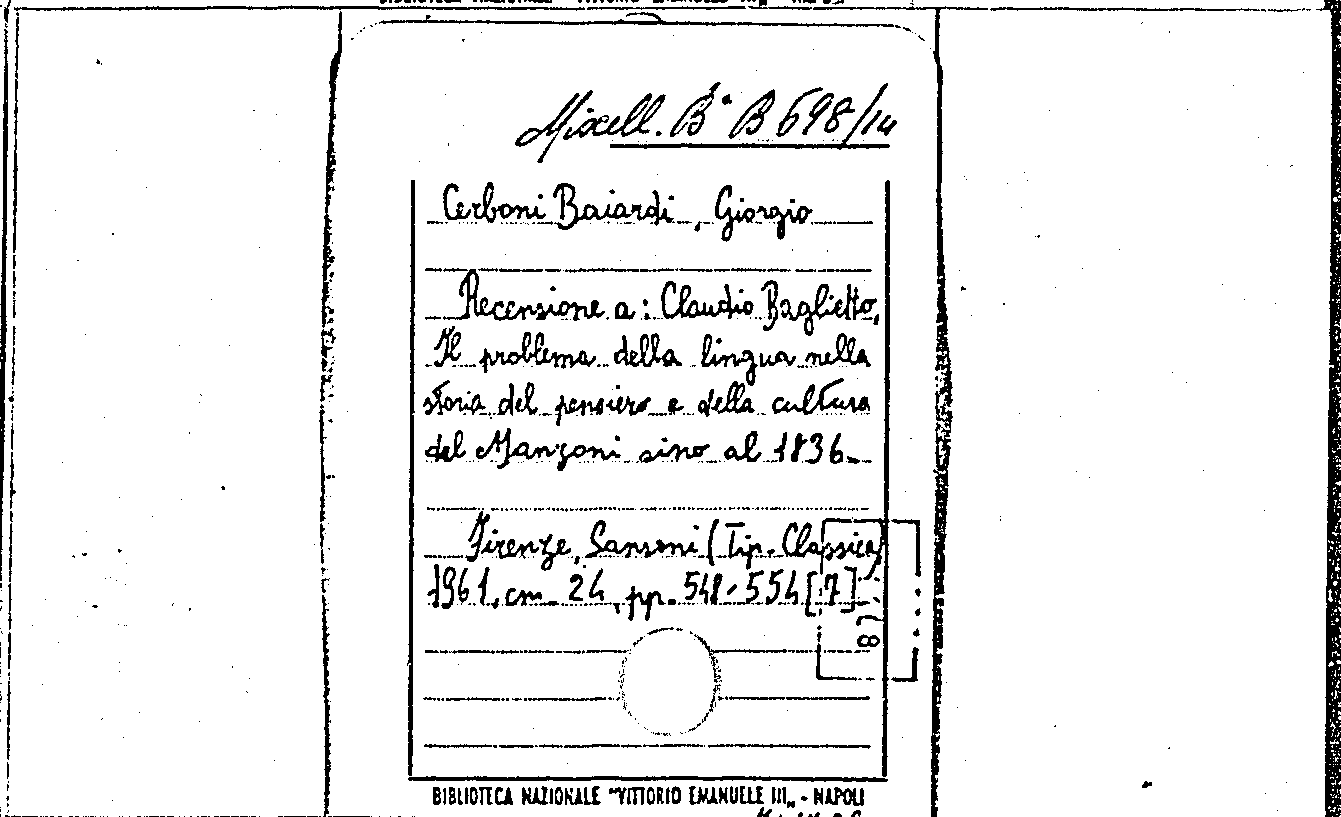 BIBLIOTECA NAZIONALE "VITTORIO EMANUELE III„ - NAPOLI
Miscell. Bª B 698/14
Cerboni Baiardi, Giorgio
Recensione a: Claudio Baglietto,
Il problema della lingua nella
storia del pensiero e della cultura
del Manzoni sino al 1836_
Firenze, Sansoni (Tip. Classica)
1961, cm. 24, pp. 548-554 [7]
BIBLIOTECA NAZIONALE "VITTORIO EMANUELE III„ - NAPOLI